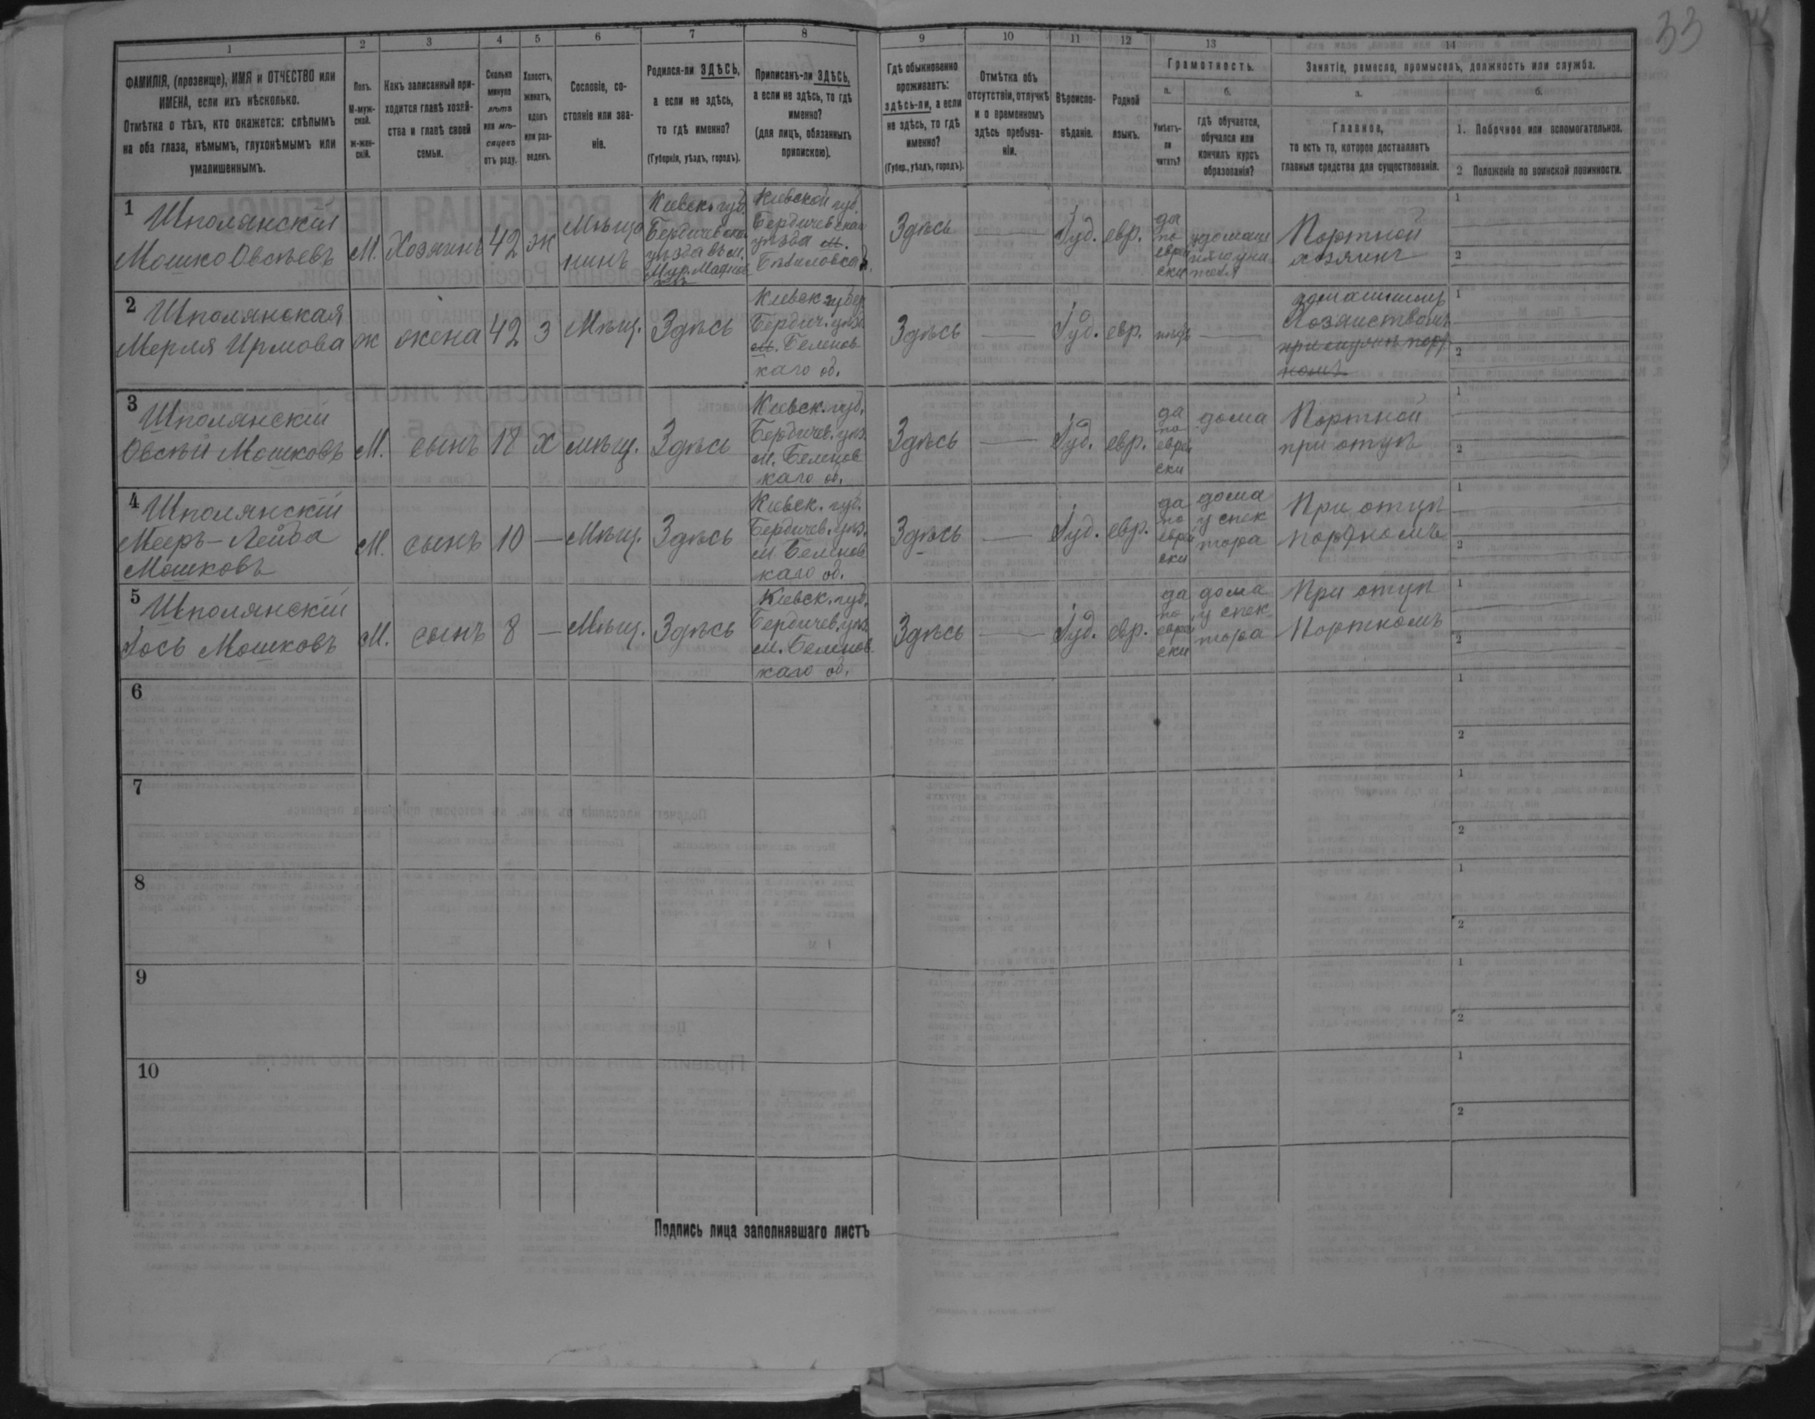 33
1 2 3 4 5 6 7 8 9 10 11 12 13 14
ФАМИЛІЯ, (прозвище), ИМЯ и ОТЧЕСТВО или
ИМЕНА, если ихъ нѣсколько.
Отмѣтка о тѣхъ, кто окажется: слѣпымъ
на оба глаза, нѣмымъ, глухонѣмымъ или
умалишеннымъ.
Полъ.
М-муж-
ской.
ж-жен-
скій.
Какъ записанный при-
ходится главѣ хозяй-
ства и главѣ своей
семьи.
Сколько
минуло
лѣтъ
или мѣ-
сяцевъ
отъ роду.
Холостъ,
женатъ,
вдовъ
или раз-
веденъ.
Сословіе, со-
стояніе или зва-
ніе.
Родился-ли ЗДѢСЬ,
а если не здѣсь,
то гдѣ именно?
(Губернія, уѣздъ, городъ).
Приписанъ-ли ЗДѢСЬ,
а если не здѣсь, то гдѣ
именно?
(для лицъ, обязанныхъ
припискою).
Гдѣ обыкновенно
проживаетъ:
здѣсь-ли, а если
не здѣсь, то гдѣ
именно?
(Губер., уѣздъ, городъ).
Отмѣтка объ
отсутствіи, отлучкѣ
и о временномъ
здѣсь пребыва-
ніи.
Вѣроиспо-
вѣданіе.
Родной
языкъ.
Грамотность.
а.
Умѣетъ-
ли
читать?
б.
Гдѣ обучается,
обучался или
кончилъ курсъ
образованія?
Занятіе, ремесло, промыселъ, должность или служба.
а.
Главное,
то есть то, которое доставляетъ
главныя средства для существованія.
б.
1. Побочное или вспомогательное.
2 Положеніе по воинской повинности.
1
Шполянскій
Мошко Овсѣевъ
М.
Хозяинъ
42
ж
Мѣща
нинъ
Кіевск. губ.
уѣзда въ м.
Кіевской губ.
уѣзда м.
Здѣсь
Іуд.
евр.
да
по
евреи
ски
Портной
хозяинъ
1
2
2
Шполянская
Мерля Ирмова
ж
жена
42
з
Мѣщ.
Здѣсь
Кіевск губер
Бердич. уѣз.
м. Белилов
каго об.
Здѣсь
Іуд.
евр.
нѣтъ
Хозяйствомъ
1
2
3
Шполянскій
Овсѣй Мошковъ
М.
сынъ
18
х
мѣщ.
Здѣсь
Кіевск. губ.
Бердичев. уѣз.
м. Белилов
каго об.
Здѣсь
Іуд.
евр.
да
по
евреи
ски
дома
Портной
при отцѣ
1
2
4
Шполянскій
Мееръ-Лейба
Мошковъ
М.
сынъ
10
Мѣщ.
Здѣсь
Кіевск. губ.
Бердичев. уѣз.
м Белилов
каго об.
Здѣсь
Іуд.
евр.
да
по
евреи
ски
дома
При отцѣ
портномъ
1
2
5
Шполянскій
Іось Мошковъ
М.
сынъ
8
Мѣщ.
Здѣсь
Кіевск. губ.
Бердичев. уѣз.
м. Белилов
каго об.
Здѣсь
Іуд.
евр.
да
по
евреи
ски
дома
При отцѣ
Портномъ
1
2
6
1
2
7
1
2
8
1
2
9
1
2
10
1
2
Подпись лица заполнявшаго листъ